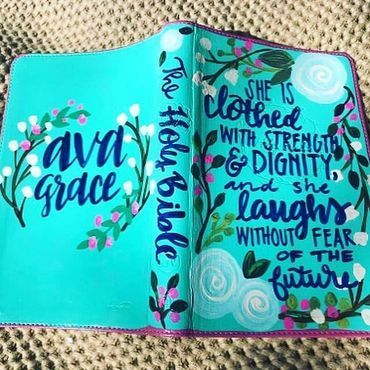 ava
grace
The Holy Bible
SHE IS
clothed
WITH STRENGTH
& DIGNITY,
and she
laughs
WITHOUT FEAR
OF THE
future